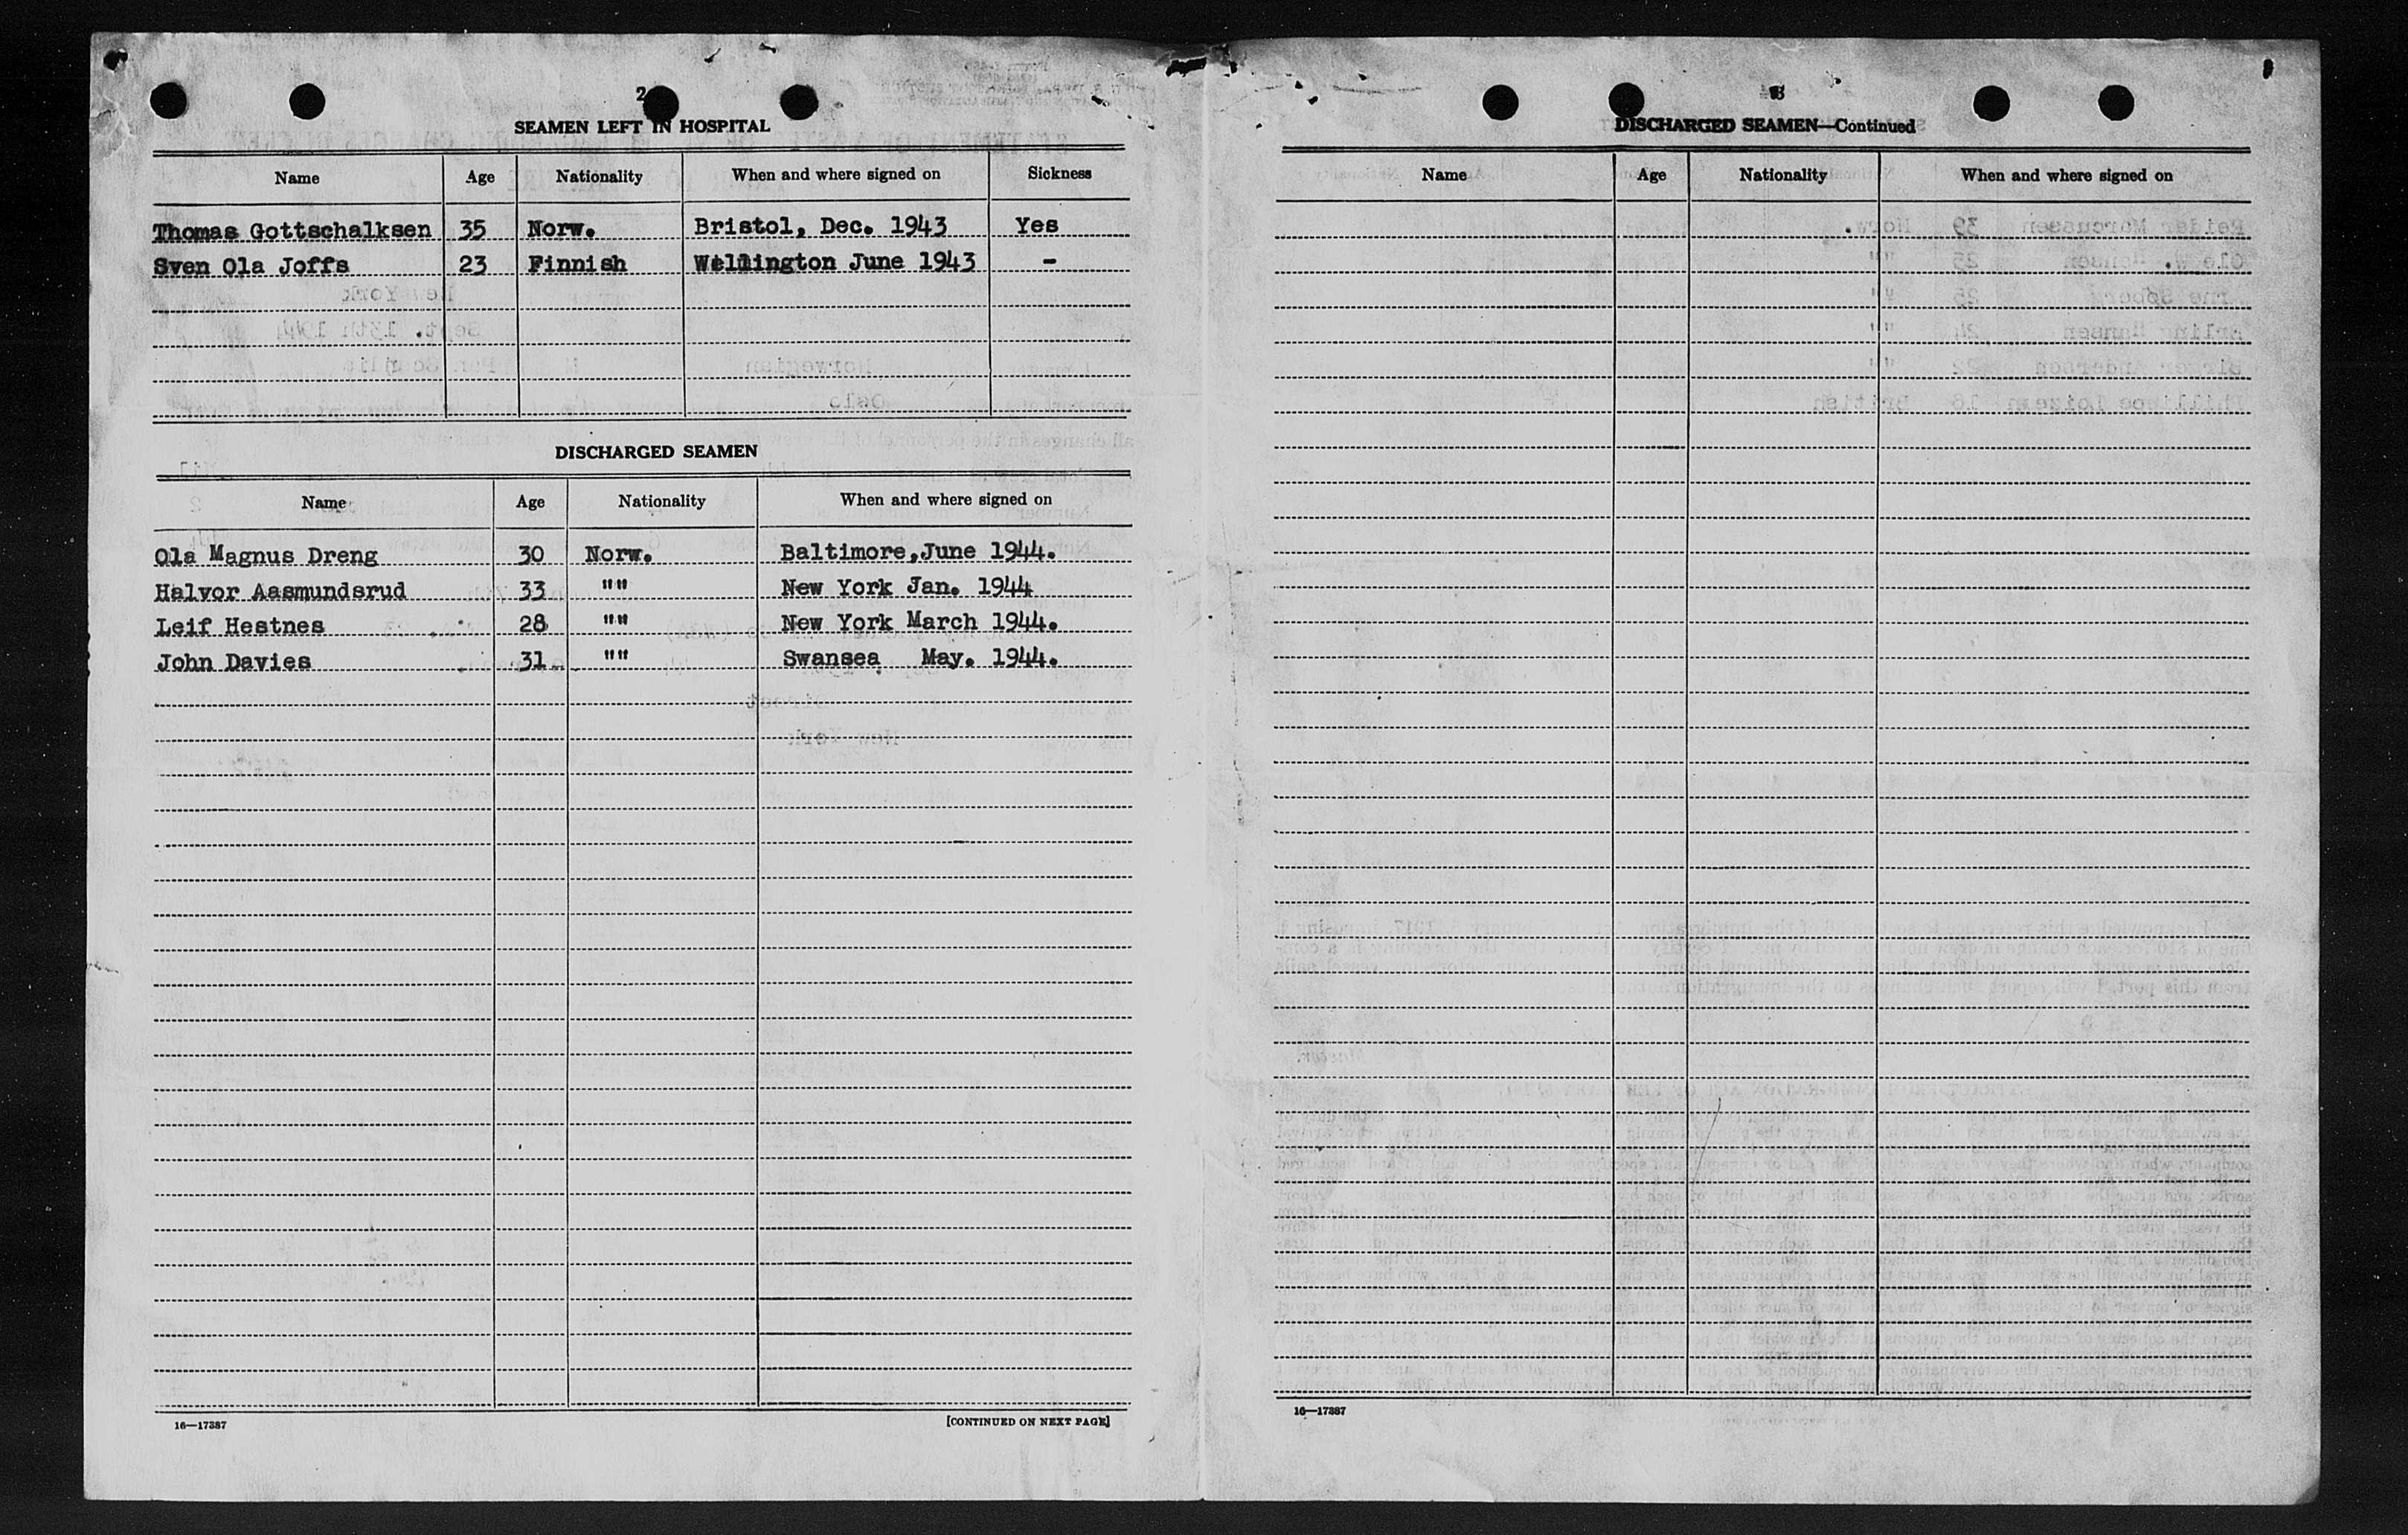 2
SEAMEN LEFT IN HOSPITAL
Name Age Nationality When and where signed on Sickness
Thomas Gottschalksen 35 Norw. Bristol, Dec. 1943 Yes
Sven Ola Joffs 23 Finnish Wellington June 1943 -
DISCHARGED SEAMEN
Name Age Nationality When and where signed on
Ola Magnus Dreng 30 Norw. Baltimore,June 1944.
Halvor Aasmundsrud 33 "" New York Jan. 1944
Leif Hestnes 28 "" New York March 1944.
John Davies 31 "" Swansea May. 1944.
16—17387 [CONTINUED ON NEXT PAGE]
3
DISCHARGED SEAMEN—Continued
Name Age Nationality When and where signed on
16—17387